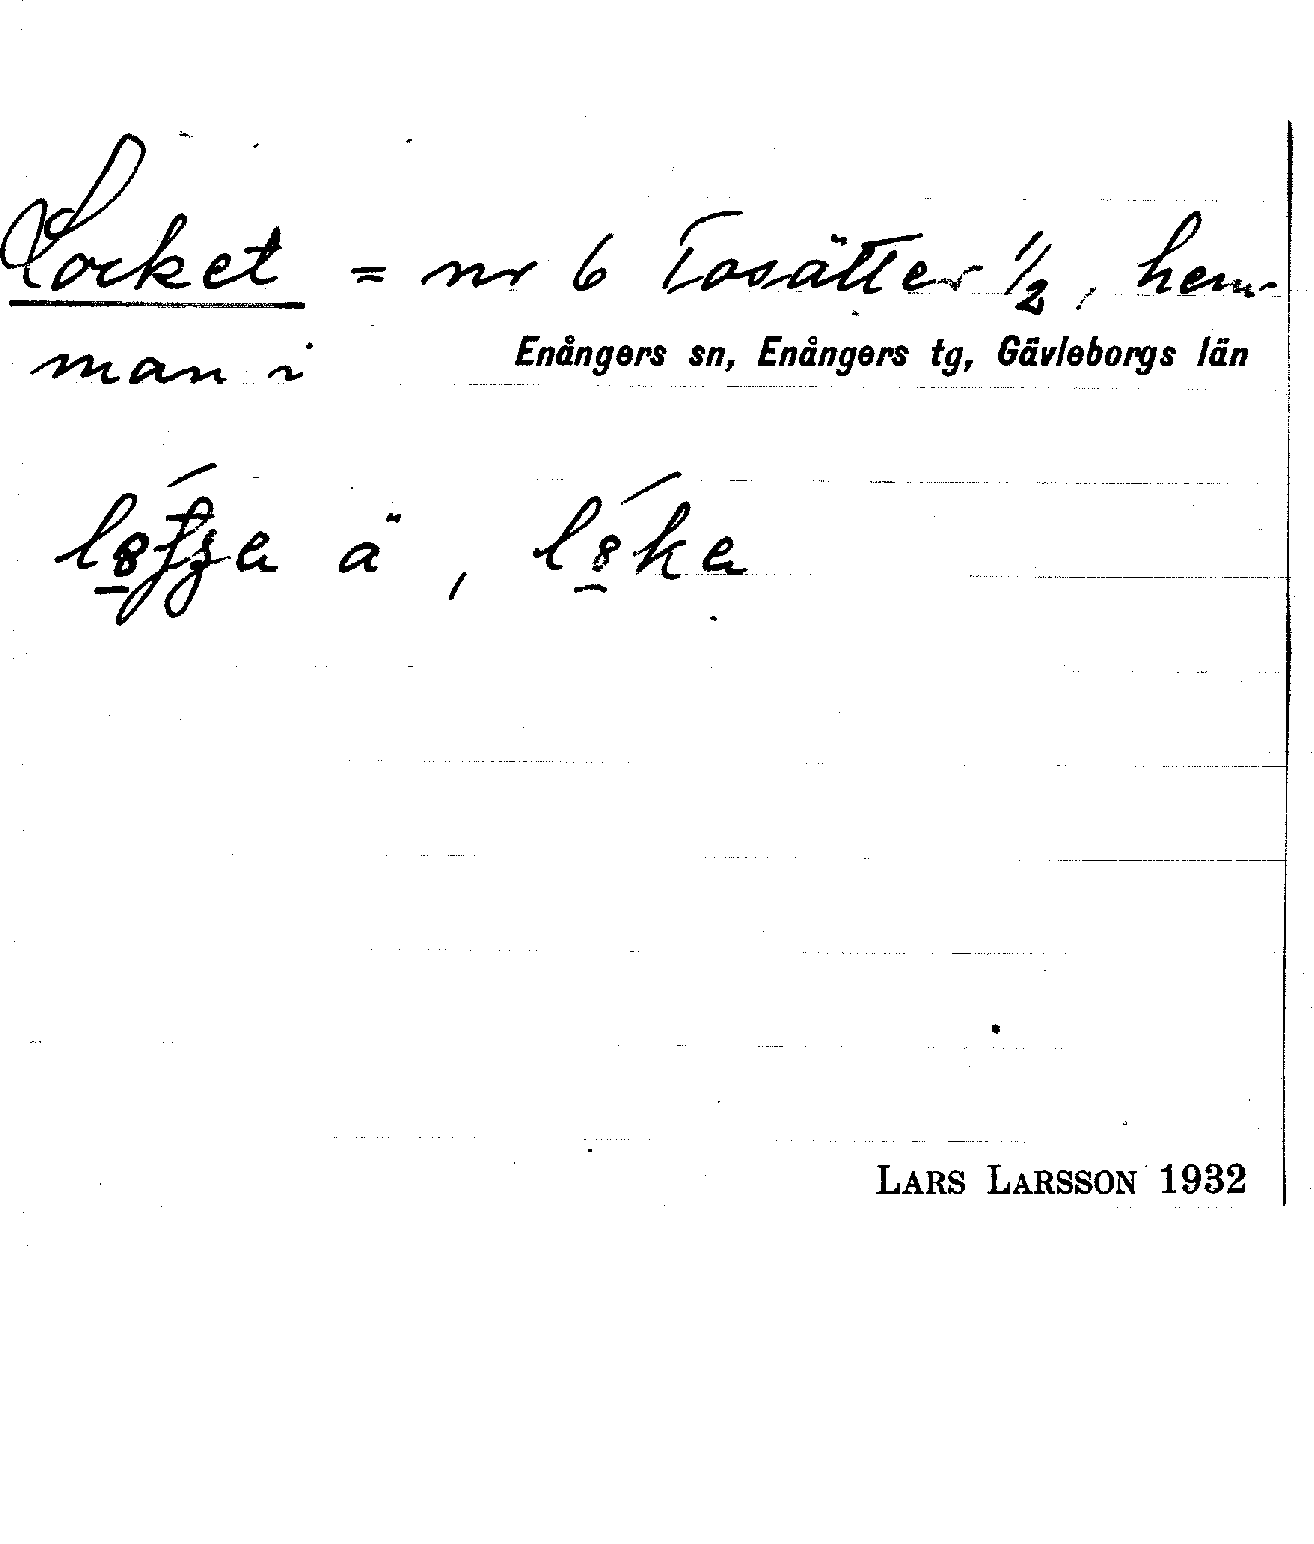 Locket = nr 6 Tosätter 1/2, hem-
man i Enångers sn, Enångers tg, Gävleborgs län
ä, 
LARS LARSSON 1932